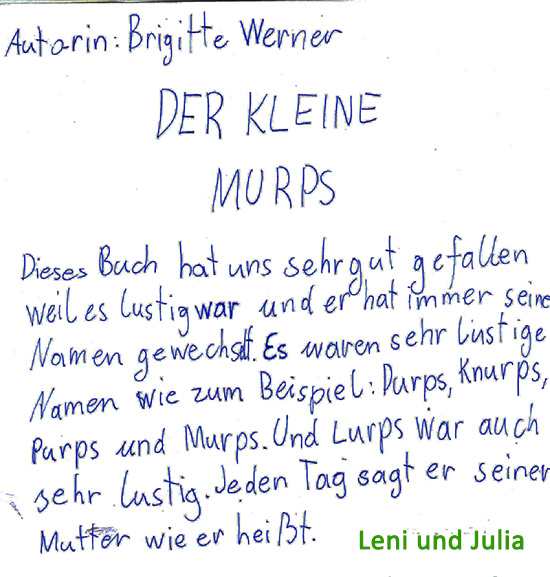 Autorin: Brigitte Werner
DER KLEINE
MURPS
Dieses Buch hat uns sehr gut gefallen
weil es lustig war und er hat immer seine
Namen gewechselt. Es waren sehr lustige
Namen wie zum Beispiel: Durps, Knurps,
Purps und Murps. Und Lurps war auch
sehr lustig. Jeden Tag sagt er seiner
Mutter wie er heißt.
Leni und Julia